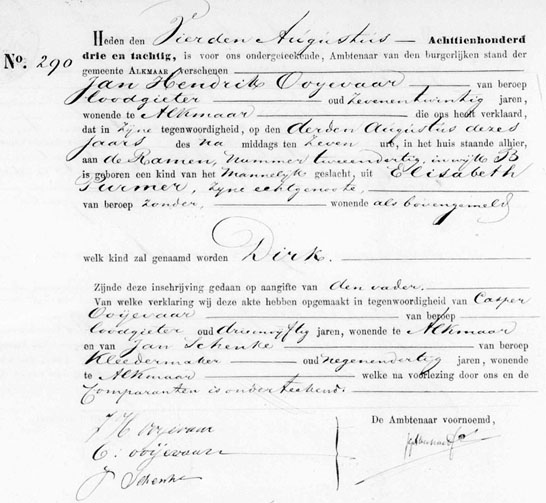 Heden den Vierden Augustus — Achttienhonderd
No. 290 drie en tachtig, is voor ons ondergeteekende, Ambtenaar van den burgerlijken stand der
gemeente ALKMAAR verschenen
Jan Hendrik Ooyevaar van beroep
loodgieter oud Zevenentwintig jaren,
wonende te Alkmaar die ons heeft verklaard,
dat in Zyne tegenwoordigheid, op den derden Augustus dezes
jaars des na middags ten Zeven ure, in het huis staande alhier,
aan de Ramen, Nummer tweeendertig, in wyk B
is geboren een kind van het Mannelyk geslacht, uit Elisabeth
Purmer, Zyne echtgenoote,
van beroep Zonder, wonende als bovengemeld
welk kind zal genaamd worden Dirk.
Zijnde deze inschrijving gedaan op aangifte van den vader.
Van welke verklaring wij deze akte hebben opgemaakt in tegenwoordigheid van Casper
Ooijevaar van beroep
loodgieter oud drieenvyftig jaren, wonende te Alkmaar
en van Jan Schenke van beroep
Kleedermaker oud negenendertig jaren, wonende
te Alkmaar welke na voorlezing door ons en de
Comparanten is onderteekend.
De Ambtenaar voornoemd,
J H Ooyevaar
C: Ooijevaar
J Schenke